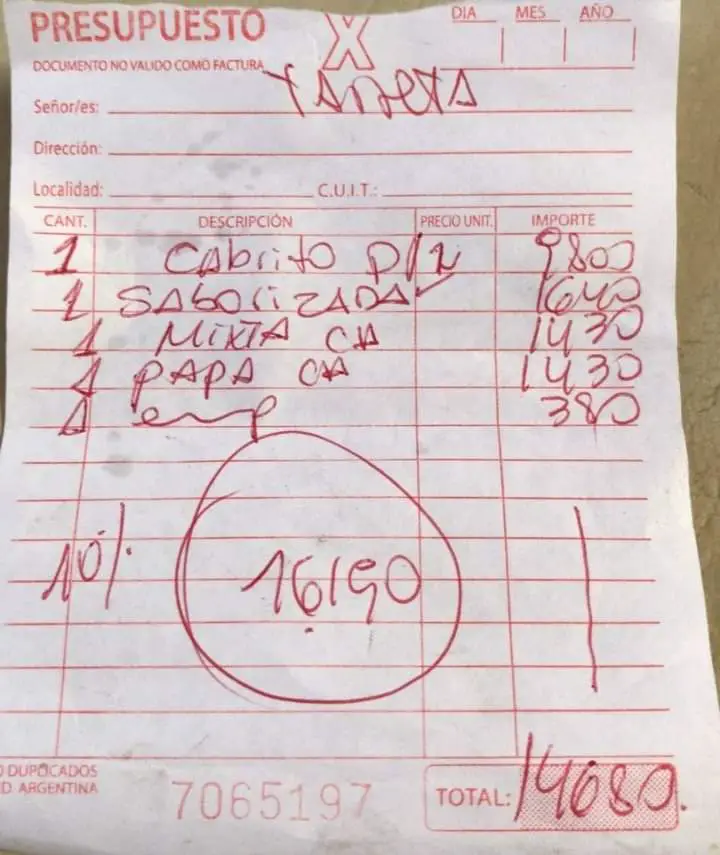 PRESUPUESTO X DIA MES AÑO
DOCUMENTO NO VALIDO COMO FACTURA
Señor/es: TARJETA
Dirección:
Localidad: C.U.I.T.:
CANT. DESCRIPCIÓN PRECIO UNIT. IMPORTE
1 CAbritO P/2 9800
2 SAbORIZADA 1640
1 MIXTA CH 1430
1 PAPA CH 1430
1 emp 380
10%. 16190
O DUPLICADOS
D ARGENTINA
7065197
TOTAL: 14680.